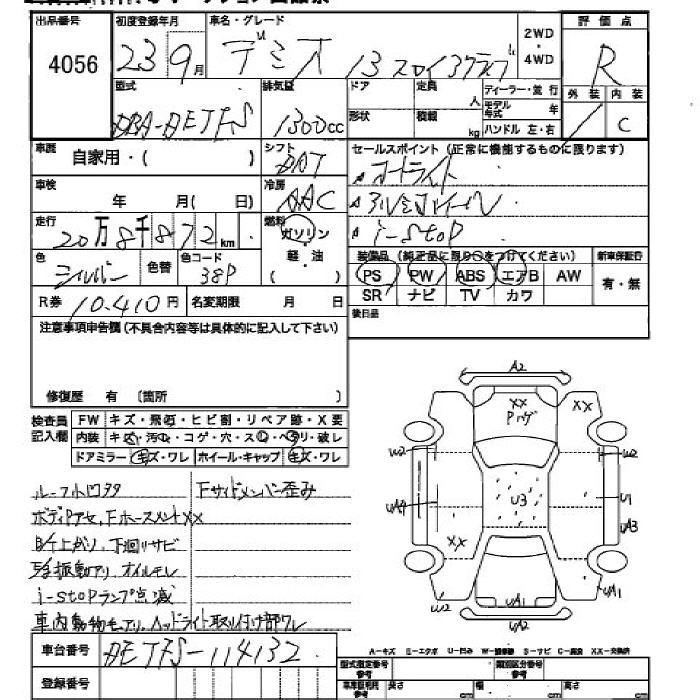 出品番号 初度登録年月 車名・グレード 2WD・4WD 評価点
4056 23 9月 デミオ 13 スカイアクティブ R
型式 排気量 ドア 定員 人 ディーラー・並行 外装 内装
DBA-DEJFS 1300cc 形状 積載 kg モデル年式 年 ハンドル 左・右 C
車歴 自家用・( ) シフト DAT セールスポイント(正常に機能するものに限ります)
車検 年 月( 日) 冷房 AAC オートライト
アルミホイール
走行 20万8千872km 燃料 ガソリン・軽油・( ) i-stop
色 シルバー 色替 色コード 38P
装備品(純正品に限り○をつけてください) 新車保証行
PS PW ABS エアB AW 有・無
SR ナビ TV カワ
R券 10,410円 名変期限 月 日 後日品
注意事項申告欄(不具合内容等は具体的に記入して下さい)
修復歴 有 (箇所 )
検査員記入欄 FW キズ・飛石・ヒビ割・リペア跡・X要
内装 キズ・汚れ・コゲ・穴・スレ・ヘタリ・破レ
ドアミラー キズ・ワレ ホイール・キャップ キズ・ワレ
ルーフ凹ヅタ Fサイドメンバー歪み
ボディPアセ、Fホースメント××
下廻リサビ
振動アリ オイルモレ
i-stopランプ点滅
車内動物モーアリ、ヘッドライト取り付け部ワレ
A2
XX
Pハゲ
XX
W2
W2
UA4
U3
U1
UA3
XX
W2
UA1
UA1
UA2
A-キズ E-エクボ U-凹み W-補修跡 S-サビ C-腐食 XX-交換済
車台番号 DEJFS-114132
登録番号
型式指定番号 参考 類別区分番号 参考
長さ cm 幅 cm 高さ cm